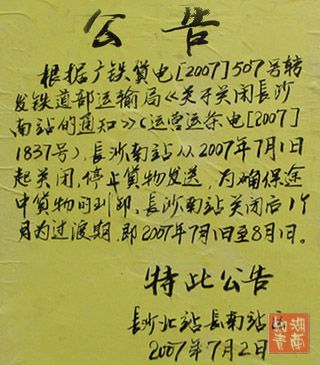 公告
根据广铁货电[2007]507号转
发铁道部运输局《关于关闭長沙
南站的通知》(运营运条电[2007]
1837号),長沙南站从2007年7月1日
起关闭,停止貨物发送,为确保途
中貨物的到卸,長沙南站关闭后1个
月为过渡期,即2007年7月1日至8月1日。
特此公告
長沙北站長南站
2007年7月2日